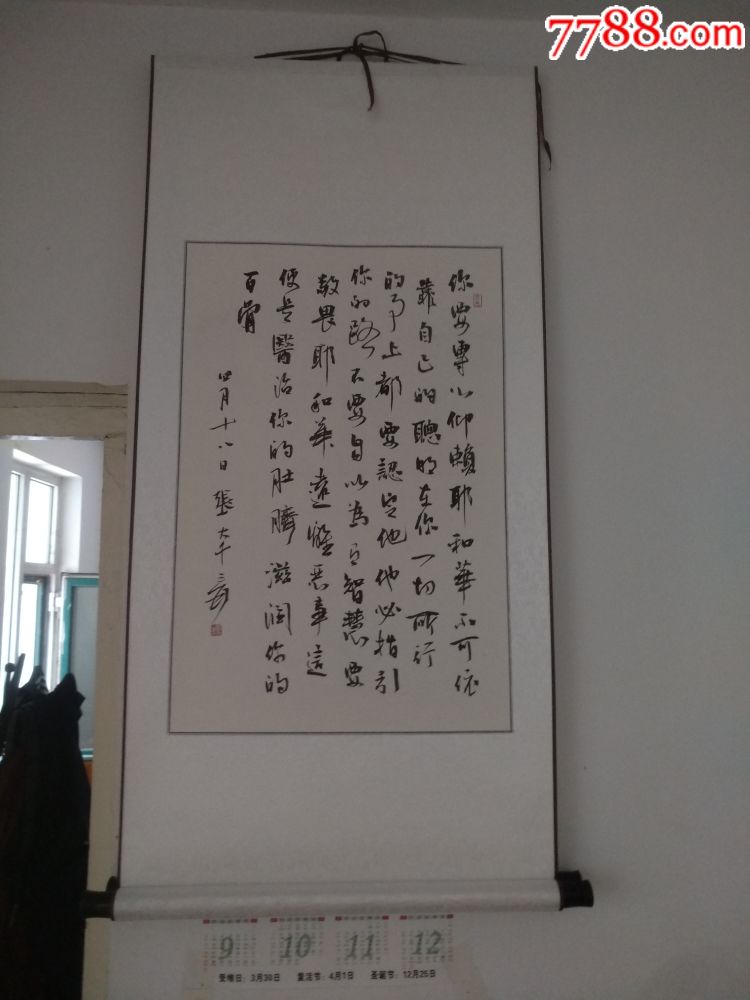 7788.com
你要專心仰賴耶和華不可依
靠自己的聰明在你一切所行
的事上都要認定他他必指引
你的路不要自以為有智慧要
敬畏耶和華遠離惡事這
便是醫治你的肚臍滋潤你的
百骨
四月十八日 張大千爰
9 10 11 12
受难日：3月30日 复活节：4月1日 圣诞节：12月25日